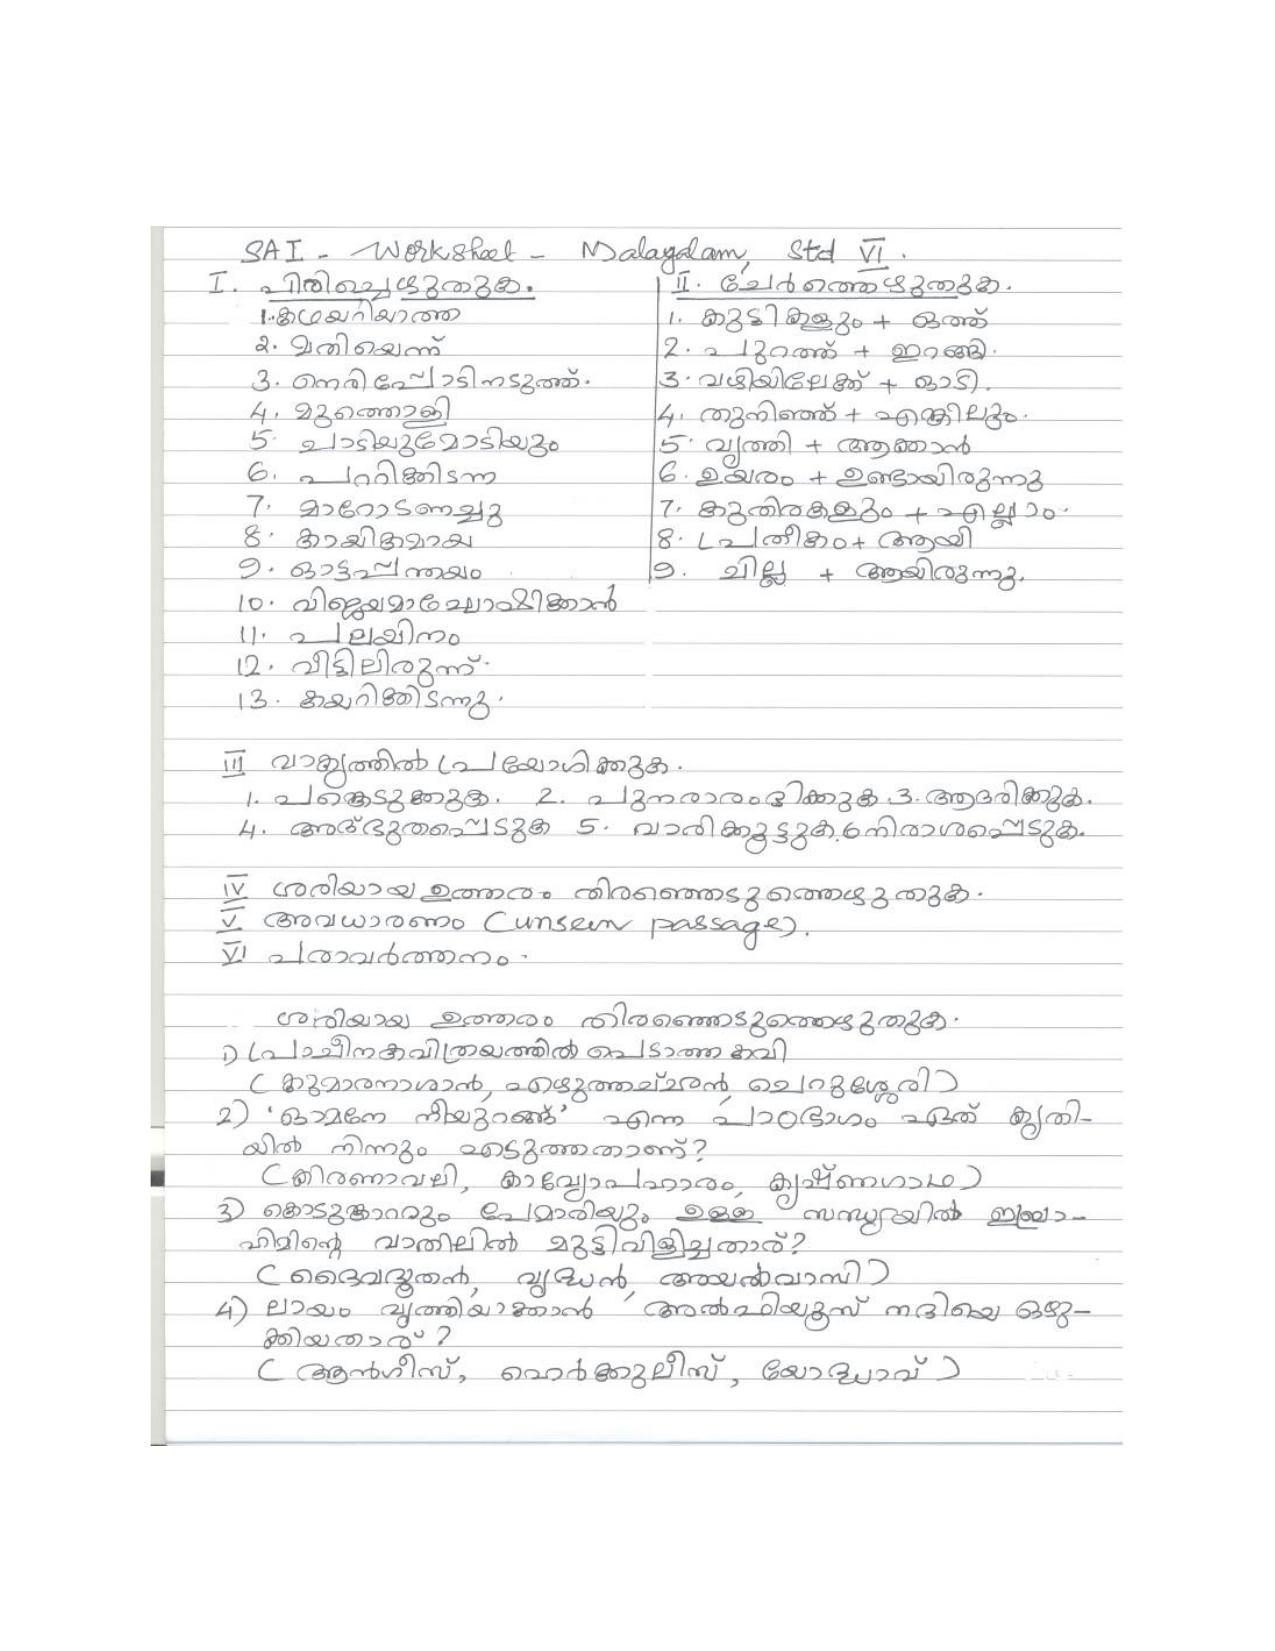 SA I - Worksheet - Malayalam, Std VI.
I. പിരിച്ചെഴുതുക.
1. കഥയറിയാത്ത
2. മതിയെന്ന്
3. നെരിപ്പോടിനടുത്ത്.
4. മുത്തൊളി
5. ചാടിയുമോടിയും
6. പറ്റിക്കിടന്ന
7. മാറോടണച്ചു
8. കായികമായ
9. ഓട്ടപ്പന്തയം
10. വിജയമാഘോഷിക്കാൻ
11. പലയിനം
12. വീട്ടിലിരുന്ന്.
13. കയറിക്കിടന്നു.
II. ചേർത്തെഴുതുക.
1. കുട്ടികളും + ഒത്ത്
2. പുറത്ത് + ഇറങ്ങി.
3. വഴിയിലേക്ക് + ഓടി.
4. തുനിഞ്ഞ് + എങ്കിലും.
5. വൃത്തി + ആക്കാൻ
6. ഉയരം + ഉണ്ടായിരുന്നു
7. കുതിരകളും + എല്ലാം.
8. പ്രതീകം + ആയി
9. ചില്ല + ആയിരുന്നു.
III വാക്യത്തിൽ പ്രയോഗിക്കുക.
1. പങ്കെടുക്കുക. 2. പുനരാരംഭിക്കുക 3. ആദരിക്കുക.
4. അത്ഭുതപ്പെടുക 5. വാരിക്കൂട്ടുക. 6 നിരാശപ്പെടുക.
IV ശരിയായ ഉത്തരം തിരഞ്ഞെടുത്തെഴുതുക.
V അവധാരണം (unseen passage).
VI പരാവർത്തനം.
ശരിയായ ഉത്തരം തിരഞ്ഞെടുത്തെഴുതുക.
1) പ്രാചീനകവിത്രയത്തിൽ പെടാത്ത കവി
(കുമാരനാശാൻ, എഴുത്തച്ഛൻ, ചെറുശ്ശേരി)
2) 'ഓമനേ നീയുറങ്ങ്' എന്ന പാഠഭാഗം ഏത് കൃതി-
യിൽ നിന്നും എടുത്തതാണ്?
(കിരണാവലി, കാവ്യോപഹാരം, കൃഷ്ണഗാഥ)
3) കൊടുങ്കാറ്റും പേമാരിയും ഉള്ള സന്ധ്യയിൽ ഇബ്രാ-
ഹിമിന്റെ വാതിലിൽ മുട്ടിവിളിച്ചതാര്?
(ദൈവദൂതൻ, വൃദ്ധൻ, അയൽവാസി)
4) ലായം വൃത്തിയാക്കാൻ അൽഫിയൂസ് നദിയെ ഒഴു-
ക്കിയതാര്?
(ആൻഗീസ്, ഹെർക്കുലീസ്, യോദ്ധാവ്)